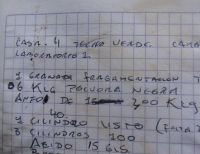 CASA. 4 TECHO VERDE. CAMB
LABORATORIO 1.
1 GRANADA FRAGMENTACION T
06 KLG POLVORA NEGRA
ANFO DE 200 KLG
40.
1 CILINDRO LISTO (FALTA
3 CILINDROS 100
ACIDO 15 GLS